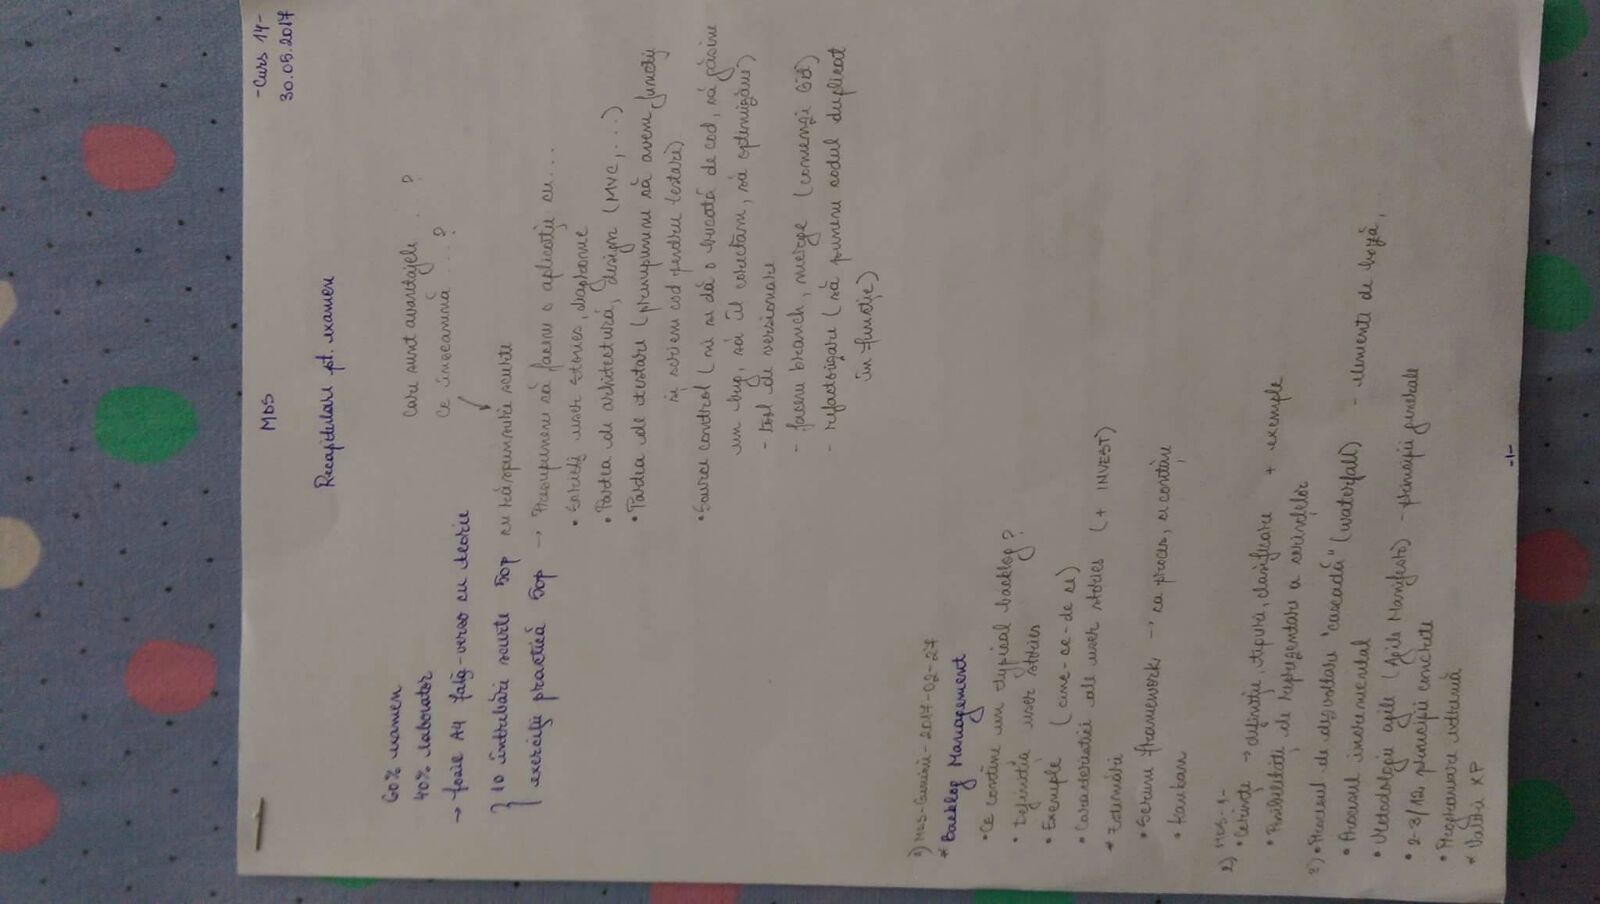 - Curs 14 -
30.05.2017
MDS
Recapitulare pt. examen
60% examen
40% laborator
→ foaie A4 față-verso cu teorie
care sunt avantajele ... ?
ce înseamnă ... ?
10 întrebări scurte 50p cu răspunsuri scurte
exerciții practică 50p → Presupunem să facem o aplicație cu...
• Scrieți user stories, diagrame
• Partea de arhitectură, design (MVC, ...)
• Partea de testare (presupunem să avem funcții
și scriem cod pentru testare)
• Source control (ni se dă o bucată de cod, să găsim
un bug, să îl corectăm, să optimizăm)
- tool de versionare
- facem branch, merge (comenzi Git)
- refactorizare (să punem codul duplicat
în funcție)
1) MDS-Cursuri-2017-02-27
* Backlog Management
• Ce conține un typical backlog?
• Definiția user stories
• Exemple (cine-ce-de ce)
• Caracteristici ale user stories (+ INVEST)
* Estimări
• Scrum framework → ca proces, ce conține
• Kanban
2) MDS-1-
• Cerințe → definiție, tipuri, clasificare + exemple
• Posibilități de reprezentare a cerințelor
3) • Procesul de dezvoltare "cascadă" (waterfall) - elemente de bază
• Procesul incremental
• Metodologii agile (Agile Manifesto) - principii generale
• 2-3/12 principii concrete
• Programare extremă
* Valori XP
-1-